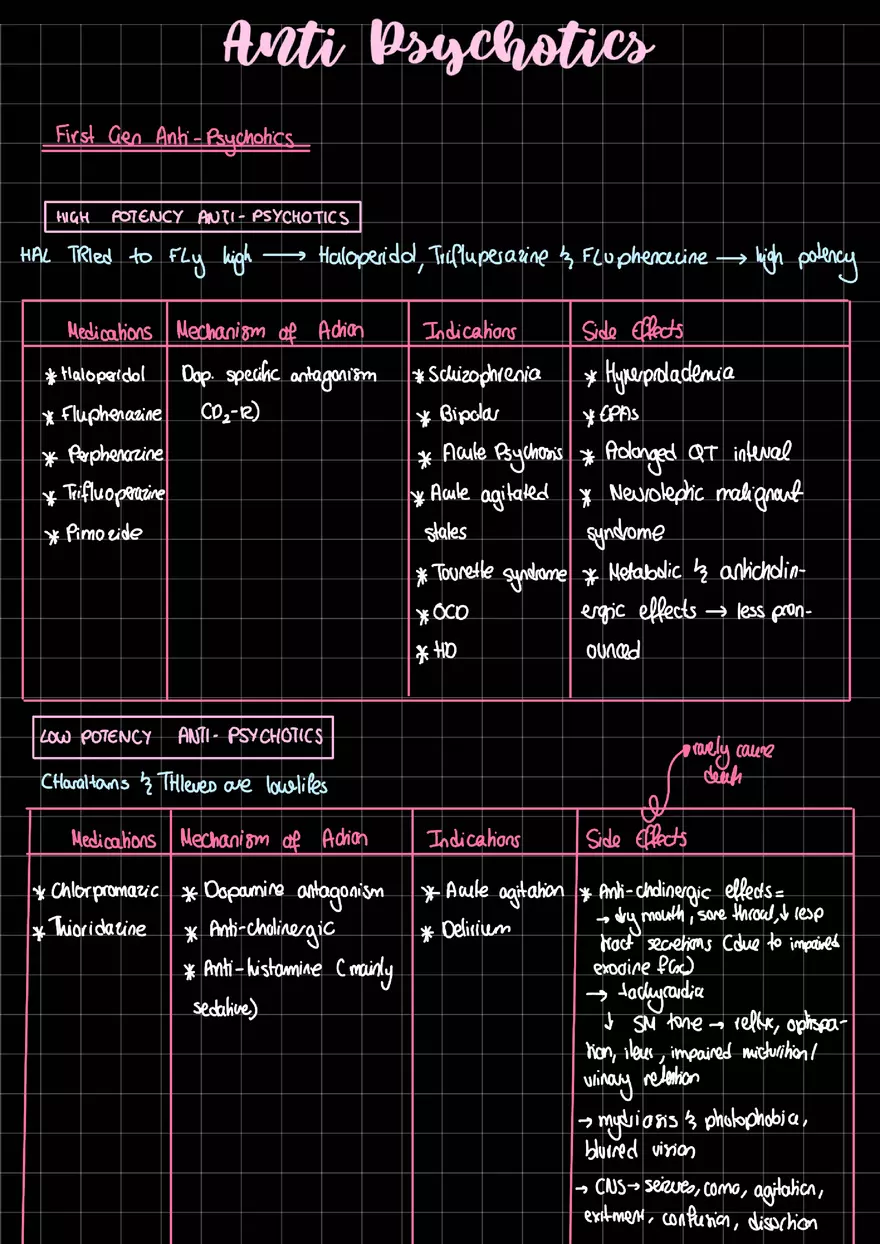 Anti Psychotics
First Gen Anti-Psychotics
HIGH POTENCY ANTI-PSYCHOTICS
HAL TRIed to FLy high → Haloperidol, Trifluperazine & FLuphenazine → high potency
Medications Mechanism of Action Indications Side Effects
* Haloperidol
* Fluphenazine
* Perphenazine
* Trifluoperazine
* Pimozide
Dop. specific antagonism
(D₂-R)
* Schizophrenia
* Bipolar
* Acute Psychosis
* Acute agitated
states
* Tourette syndrome
* OCD
* HD
* Hyperprolademia
* EPAs
* Prolonged QT interval
* Neuroleptic malignant
syndrome
* Metabolic & anticholin-
ergic effects → less pron-
ounced
LOW POTENCY ANTI-PSYCHOTICS
CHaraltans & THIeves are lowlifes
rarely cause
death
Medications Mechanism of Action Indications Side Effects
* Chlorpromazic
* Thioridazine
* Dopamine antagonism
* Anti-cholinergic
* Anti-histamine (mainly
sedative)
* Acute agitation
* Delirium
* Anti-cholinergic effects =
→ dry mouth, sore throat, ↓ resp
tract secretions (due to impaired
exocrine f(x))
→ tachycardia
↓ SM tone → reflux,
ileus, impaired micturition/
urinary retention
→ mydriasis & photophobia,
blurred vision
→ CNS → seizures, coma, agitation,
exitment, confusion,